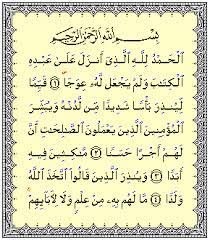 بِسْمِ اللَّهِ الرَّحْمَٰنِ الرَّحِيمِ
الْحَمْدُ لِلَّهِ الَّذِي أَنزَلَ عَلَىٰ عَبْدِهِ
الْكِتَابَ وَلَمْ يَجْعَل لَّهُ عِوَجًا ۜ ﴿١﴾ قَيِّمًا
لِّيُنذِرَ بَأْسًا شَدِيدًا مِّن لَّدُنْهُ وَيُبَشِّرَ
الْمُؤْمِنِينَ الَّذِينَ يَعْمَلُونَ الصَّالِحَاتِ أَنَّ
لَهُمْ أَجْرًا حَسَنًا ﴿٢﴾ مَّاكِثِينَ فِيهِ
أَبَدًا ﴿٣﴾ وَيُنذِرَ الَّذِينَ قَالُوا اتَّخَذَ اللَّهُ
وَلَدًا ﴿٤﴾ مَّا لَهُم بِهِ مِنْ عِلْمٍ وَلَا لِآبَائِهِمْ